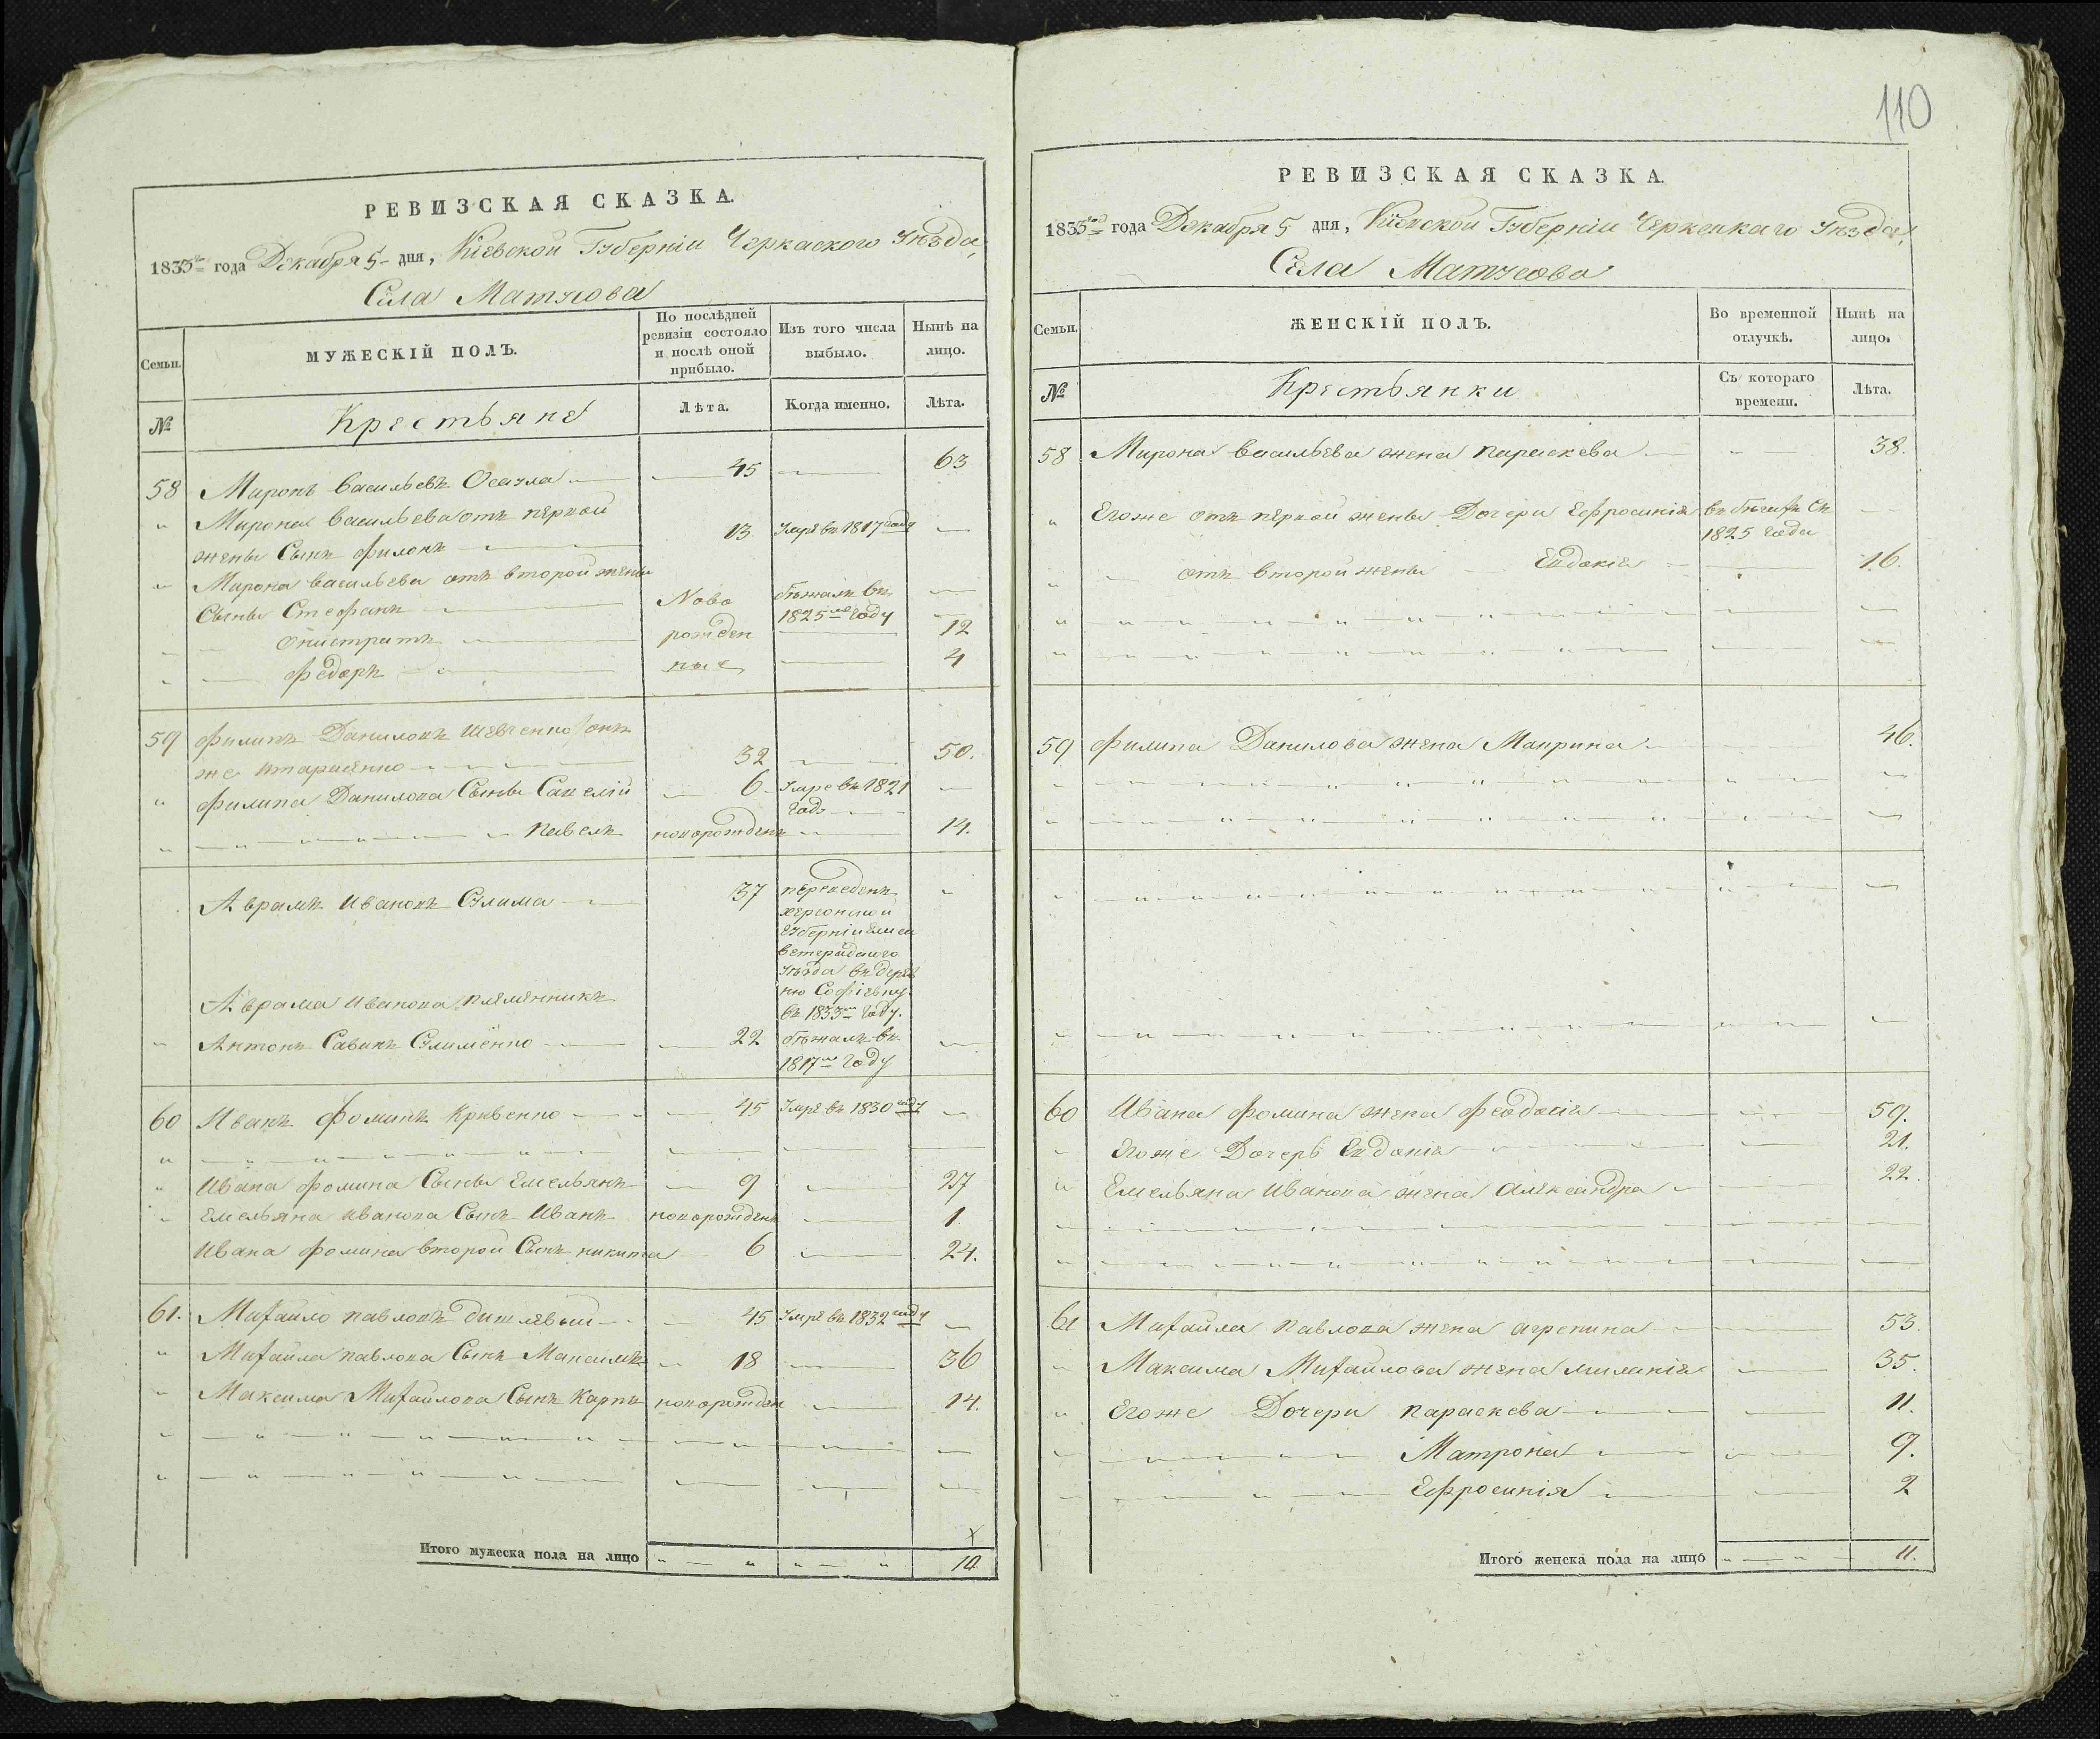 РЕВИЗСКАЯ СКАЗКА.
1835го года Декабря 5 дня, Кіевской Губерніи Черкаского Уѣзда,
Села Матусова
Семьи.
МУЖЕСКІЙ ПОЛЪ.
По послѣдней ревизіи состояло и послѣ оной прибыло.
Изъ того числа выбыло.
Нынѣ на лицо.
№
Крестьяне
Лѣта.
Когда именно.
Лѣта.
58 Миронъ Васильевъ Осаула 45 63
Мирона Васильева отъ первой
жены Сынъ Филонъ 13. Умре въ 1817 году
Мирона Васильева отъ второй жены
Сыны Стефанъ Ново бѣжалъ въ 1825м году
Онистратъ рожден 12
Федоръ ные 4
59 Филипъ Даниловъ Шевченко онъ
же Итарасенко 32 50.
Филипа Данилова Сыны Савелій 6. Умре въ 1821 годѣ
Павелъ новорожденъ 14.
Аврамъ Ивановъ Сулима 37 переведенъ
херсонской
Губерніи Елиса
ветградского
уѣзда въ дерев
ню Софіевку
въ 1833м году.
Аврама Иванова племенникъ
Антонъ Савинъ Сулименко 22 бѣжалъ въ
1817м году
60 Иванъ Фоминъ Кривенко 45 Умре въ 1830 году
Ивана Фомина Сыны Емельянъ 9 27
Емельяна Иванова Сынъ Иванъ новорожденъ 1
Ивана Фомина второй Сынъ никита 6 24.
61. Михайло павловъ 45 Умре въ 1832 году
Михайла павлова Сынъ Максимъ 18 36
Максима Михайлова Сынъ Карпъ новорожден 14.
Итого мужеска пола на лицо 10
110
РЕВИЗСКАЯ СКАЗКА.
1835го года Декабря 5 дня, Кіевской Губерніи Черкаскаго Уѣзда,
Села Матусова
Семьи.
ЖЕНСКІЙ ПОЛЪ.
Во временной отлучкѣ.
Нынѣ на лицо.
№
Крестьянки
Съ котораго времени.
Лѣта.
58 Мирона Васильева жена параскева 38.
Егоже отъ первой жены Дочери Ефросинія въ бѣгахъ съ
1825 года
отъ второй жены Евдокія 16.
59 Филипа Данилова жена Маврина 46.
60 Ивана Фомина жена Феодосія 59.
Егоже Дочерь Евдокія 21.
Емельяна Иванова жена Александра 22.
61 Михайла павлова жена агрепина 53.
Максима Михайлова жена миланія 35.
Егоже Дочери параскева 11.
Матрона 9.
Ефросинія 2
Итого женска пола на лицо 11.